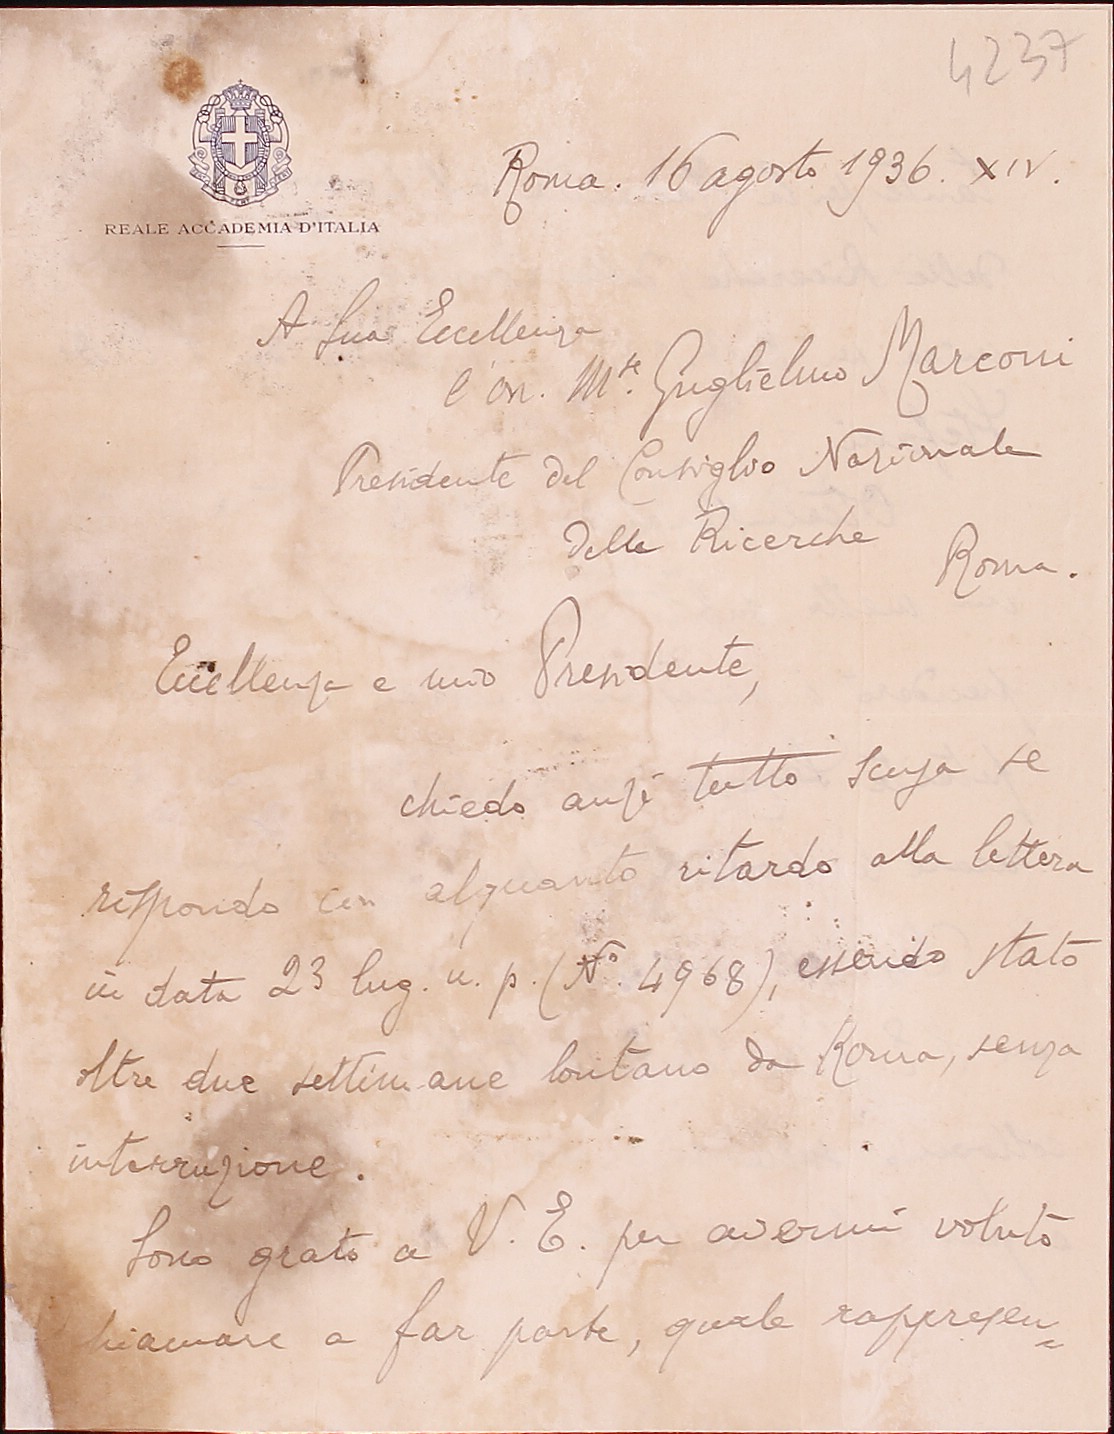 4237
REALE ACCADEMIA D'ITALIA
Roma. 16 agosto 1936. XIV.
A Sua Eccellenza
l'on. Mse. Guglielmo Marconi
Presidente del Consiglio Nazionale
delle Ricerche
Roma.
Eccellenza e mio Presidente,
chiedo anzi tutto scusa se
rispondo con alquanto ritardo alla lettera
in data 23 lug. u. p. (No. 4968), essendo stato
oltre due settimane lontano da Roma, senza
interruzione.
Sono grato a V. E. per avermi voluto
chiamare a far parte, quale rappresen=